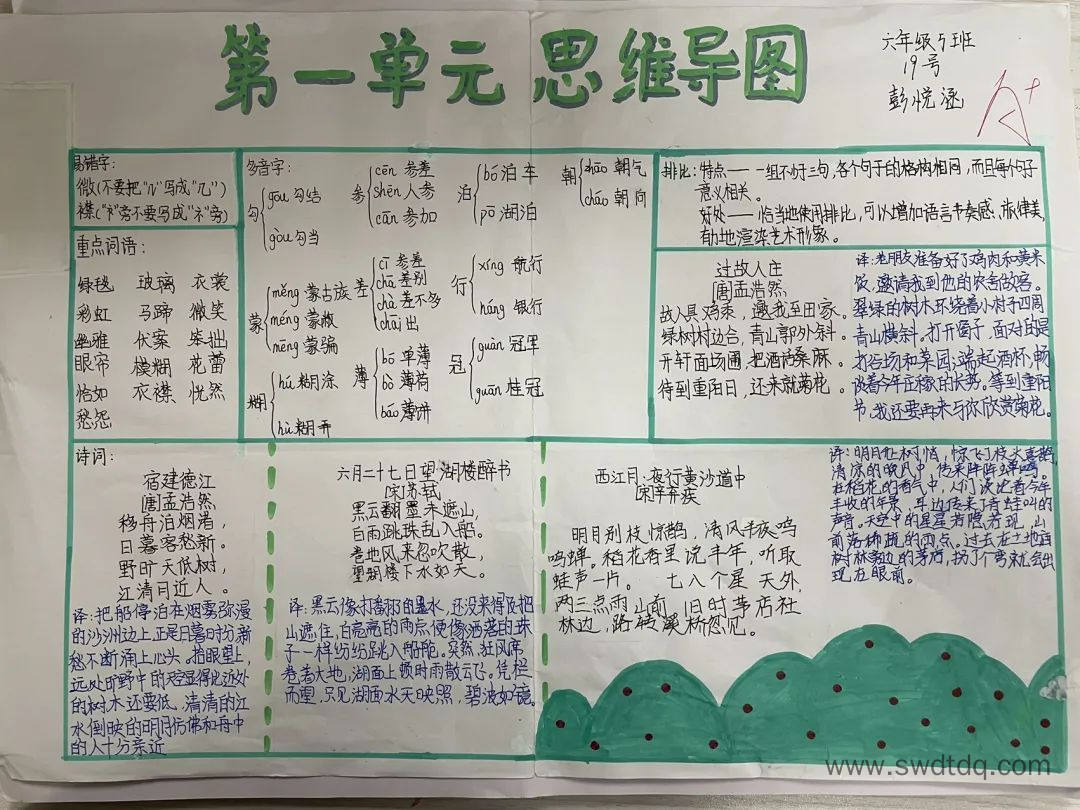 第一单元 思维导图
六年级5班
19号
彭悦涵
A+
易错字:
微(不要把"几"写成"兀")
襟("衤"旁不要写成"礻"旁)
重点词语:
绿毯 玻璃 衣裳
彩虹 马蹄 微笑
幽雅 伏案 笨拙
眼帘 模糊 花蕾
恰如 衣襟 恍然
愁怨
多音字:
勾 gōu 勾结
gòu 勾当
参 cēn 参差
shēn 人参
cān 参加
泊 bó 泊车
pō 湖泊
朝 zhāo 朝气
cháo 朝向
蒙 měng 蒙古族
méng 蒙蔽
mēng 蒙骗
差 cī 参差
chā 差别
chà 差不多
chāi 出
行 xíng 航行
háng 银行
糊 hú 糊涂
hù 糊弄
薄 bó 单薄
bò 薄荷
báo 薄饼
冠 guàn 冠军
guān 桂冠
排比:特点——一组不少于三句,各个句子的格构相同,而且每个句子
意义相关。
好处——恰当地使用排比,可以增加语言节奏感、旋律美,
有助地渲染艺术形象。
过故人庄
[唐]孟浩然
故人具鸡黍,邀我至田家。
绿树村边合,青山郭外斜。
开轩面场圃,把酒话桑麻。
待到重阳日,还来就菊花。
译:老朋友准备好了鸡肉和黄米
饭,邀请我到他的农舍做客。
翠绿的树木环绕着小村子四周
青山横斜。打开窗子,面对的是
打谷场和菜园;端起酒杯,畅
谈着今年庄稼的长势。等到重阳
节,我还要再来与你欣赏菊花。
诗词:
宿建德江
[唐]孟浩然
移舟泊烟渚,
日暮客愁新。
野旷天低树,
江清月近人。
译:把船停泊在烟雾弥漫
的沙洲边上,正是日暮时分,新
愁不断涌上心头。抬眼望上,
远处旷野中的天空显得比近处
的树木还要低,清清的江
水倒映的明月仿佛和舟中
的人十分亲近
六月二十七日望湖楼醉书
[宋]苏轼
黑云翻墨未遮山,
白雨跳珠乱入船。
卷地风来忽吹散,
望湖楼下水如天。
译:黑云像打翻了的墨水,还没来得及把
山遮住,白亮亮的雨点便像洒落的珠
子一样纷纷跳入船舱。突然,狂风席
卷着大地,湖面上顿时雨散云飞。凭栏
而望,只见湖面水天映照,碧波如镜。
西江月·夜行黄沙道中
[宋]辛弃疾
明月别枝惊鹊,清风半夜鸣
鸣蝉。稻花香里说丰年,听取
蛙声一片。 七八个星天外,
两三点雨山前。旧时茅店社
林边,路转溪桥忽见。
译:明月在树梢,惊飞了枝头喜鹊,
清凉的晚风中,传来阵阵蝉鸣。
在稻花的香气中,人们谈论着今年
丰收的年景,耳边传来了青蛙叫的
声音。天空中的星星若隐若现,山
前落稀疏的雨点。过去在土地庙
树林旁边的茅店,拐了个弯就会出
现在眼前。
www.swdtdq.com